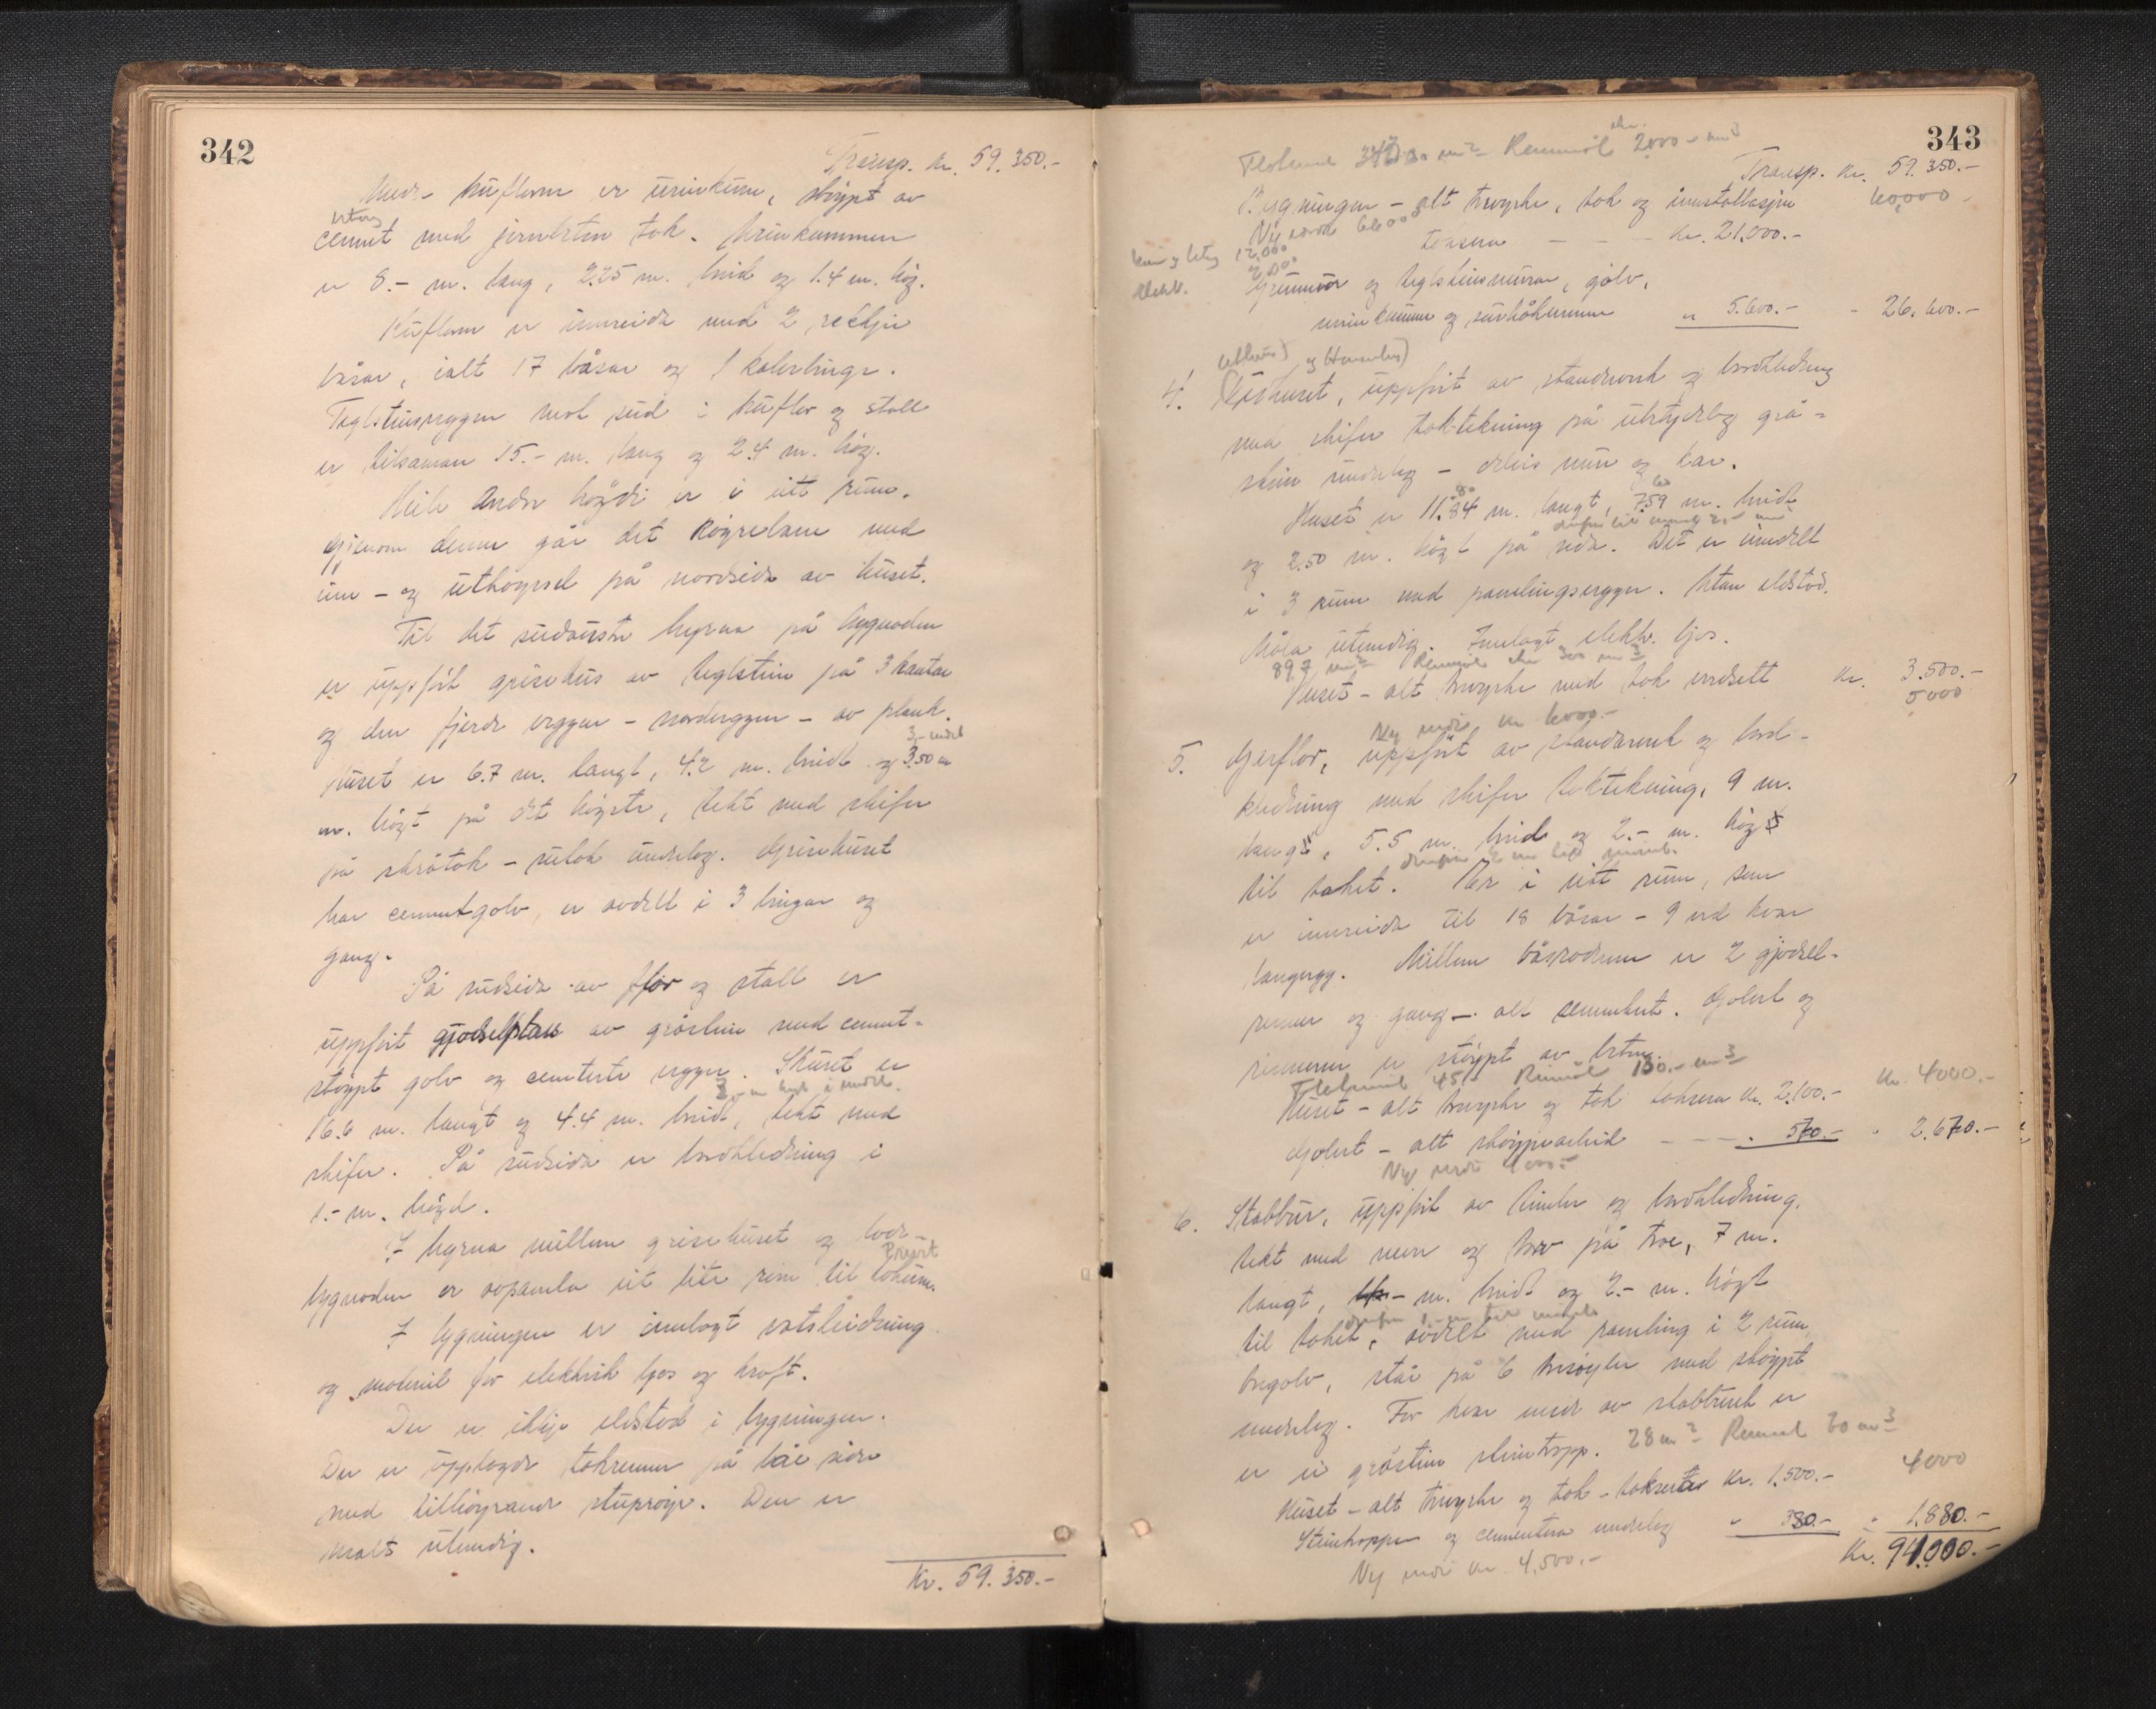 342
Transp. kr. 59.350.-
Under kufloren er urinkum, støypt av
cement med jernbeton tak. Urinkummen
er 8.- m. lang, 2.25 m. breid og 1.4 m. høg.
Kufloren er innreida med 2 rekkjer
båsar, ialt 17 båsar og 1 kalvebinge.
Teglsteinsveggen mot sud i kuflor og stall
er tilsaman 15.- m. lang og 2.4 m. høg.
Heile andre høgdi er i eitt rum.
Gjenom denne går det køyrelem med
inn- og utkøyrsel på nordsida av huset.
Til det sudaustre hyrna på bygnaden
er uppført grisehus av teglstein på 3 kantar
og den fjerde veggen - nordveggen - av plank.
Huset er 6.7 m. langt, 4.2 m. breidt og 3.50 m
m. høgt på det høgste, tekt med skifer
på skråtak - sutak underlag. Grisehuset
har cementgolv, er avdelt i 3 bingar og
gang.
På sudsida av flor og stall er
uppført gjødselstaus av gråstein med cement-
støypt golv og cementerte veggar. Skuret er
16.6 m. langt og 4.4 m. breidt, tekt med
skifer. På sudsida er bordkledning i
1.- m. høgd.
I hyrna millom grisehuset og hovd-
bygnaden er avpanla eit lite rom til lokum.
I bygningen er innlagt vatsleidning
og materiel for elektrisk ljos og kraft.
Der er ikkje eldstad i bygningen.
Der er upplagde takrennor på båe sider
med tilhøyrande stuprøyr. Den er
malt utendig.
Kr. 59.350.-
343
Transp. kr. 59.350.-
Bygningen - alt treverke, tak og innstallasjon
60,000
taksera - - - kr. 21.000.-
12,000
Grunnmur og teglsteinsmurar, golv,
urinkumme og surhåkumme " 5.600.- - 26.600.-
4. Eldhuset, uppført av standverk og bordkledning
med skifer taktekning på utskjerding grå-
stein underlag - delvis mur og kar.
Huset er 11.84 m. langt, 7.59 m. breidt
og 2.50 m. høgt på sida. Det er inndelt
i 3 rum med panelingsveggar. Utan eldstad.
Måla utendig. Innlagt elektr. ljos.
Huset - alt treverke med tak verdsett kr. 3.500.-
5000
Ny verdi kr 6000.-
5. Gjeiteflor, uppført av standarverk og bord-
kledning med skifer taktekning, 9 m.
lang, 5.5 m. breid og 2.- m. høg
til taket. Er i eitt rum, som
er innreida til 18 båsar - 9 ved kvar
langvegg. Millom båsradene er 2 gjødsel-
rennor og gang - alt cementert. Golvet og
rennene er støypt av beton.
kr. 4000.-
Huset - alt treverke og tak taksera kr. 2.100.-
Golvet - alt støypearbeid - - - " 570.- " 2.670.-
6. Stabbur, uppført av timber og bordkledning,
tekt med never og torv på troe, 7 m.
langt, m. breidt og 2.- m. høgt
til taket, avdelt med paneling i 2 rum
tregolv, står på 6 tresøyler med støypt
underlag. For kvar ende av stabburet er
er ei gråstein steintrapp. 28 m² Rummål 30 m³
4000
Huset - alt treverke og tak - taksera kr. 1.500.-
Steintrappa og cementera underlag " 380.- " 1.880.-
Kr. 94.000.-
Ny verdi kr. 4.500.-